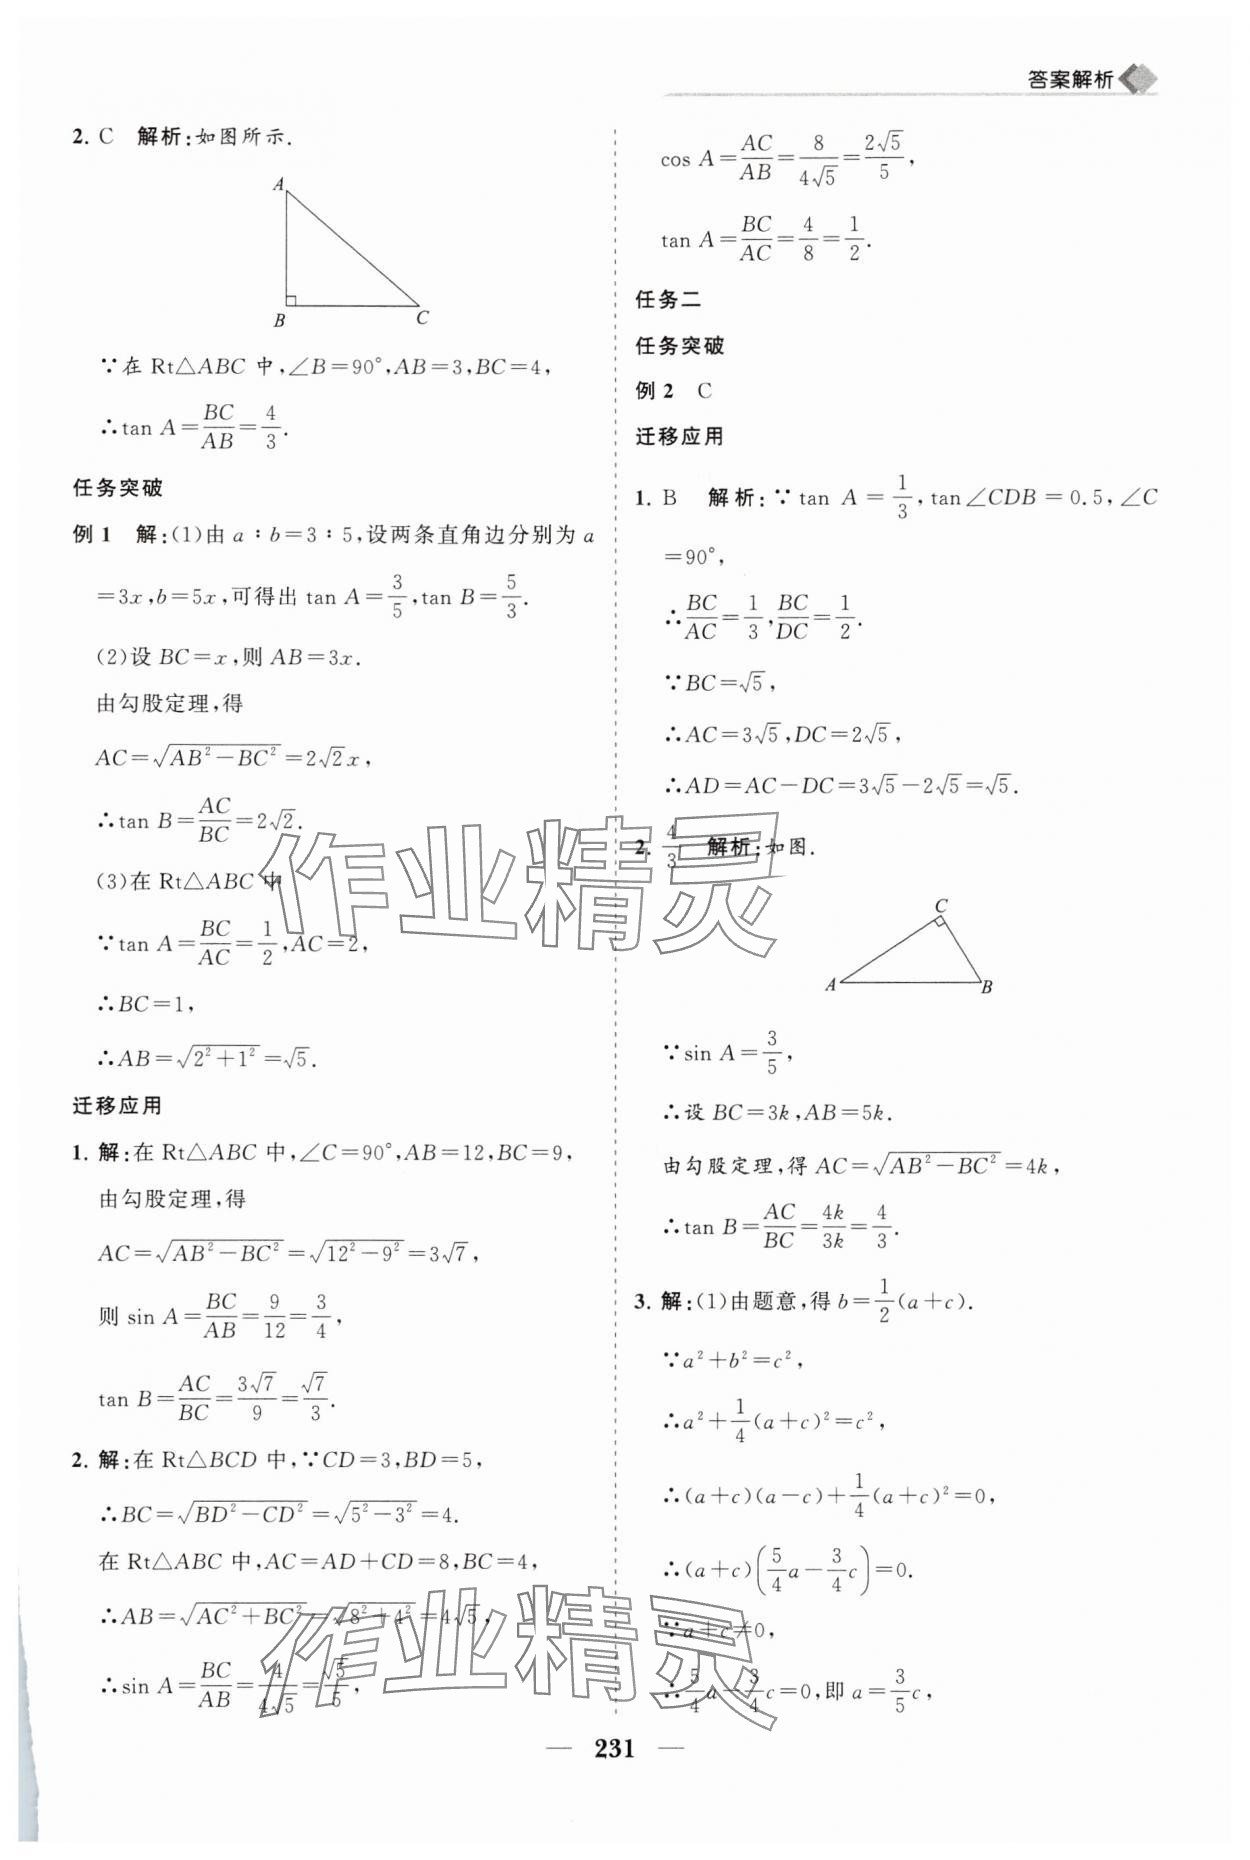 答案解析
2. C 解析:如图所示.
A
B
C
∵在 Rt△ABC 中,∠B=90°,AB=3,BC=4,
∴tan A=BC/AB=4/3.
任务突破
例1 解:(1)由 a∶b=3∶5,设两条直角边分别为 a
=3x,b=5x,可得出 tan A=3/5,tan B=5/3.
(2)设 BC=x,则 AB=3x.
由勾股定理,得
AC=√(AB²-BC²)=2√2x,
∴tan B=AC/BC=2√2.
(3)在 Rt△ABC 中
∵tan A=BC/AC=1/2,AC=2,
∴BC=1,
∴AB=√(2²+1²)=√5.
迁移应用
1. 解:在 Rt△ABC 中,∠C=90°,AB=12,BC=9,
由勾股定理,得
AC=√(AB²-BC²)=√(12²-9²)=3√7,
则 sin A=BC/AB=9/12=3/4,
tan B=AC/BC=3√7/9=√7/3.
2. 解:在 Rt△BCD 中,∵CD=3,BD=5,
∴BC=√(BD²-CD²)=√(5²-3²)=4.
在 Rt△ABC 中,AC=AD+CD=8,BC=4,
∴AB=√(AC²+BC²)=√(8²+4²)=4√5,
∴sin A=BC/AB=4/4√5=√5/5,
cos A=AC/AB=8/4√5=2√5/5,
tan A=BC/AC=4/8=1/2.
任务二
任务突破
例2 C
迁移应用
1. B 解析:∵tan A=1/3,tan∠CDB=0.5,∠C
=90°,
∴BC/AC=1/3,BC/DC=1/2.
∵BC=√5,
∴AC=3√5,DC=2√5,
∴AD=AC-DC=3√5-2√5=√5.
2. 4/3 解析:如图.
C
A
B
∵sin A=3/5,
∴设 BC=3k,AB=5k.
由勾股定理,得 AC=√(AB²-BC²)=4k,
∴tan B=AC/BC=4k/3k=4/3.
3. 解:(1)由题意,得 b=1/2(a+c).
∵a²+b²=c²,
∴a²+1/4(a+c)²=c²,
∴(a+c)(a-c)+1/4(a+c)²=0,
∴(a+c)(5/4a-3/4c)=0.
∵a+c≠0,
∴5/4a-3/4c=0,即 a=3/5c,
作业精灵
作业精灵
— 231 —